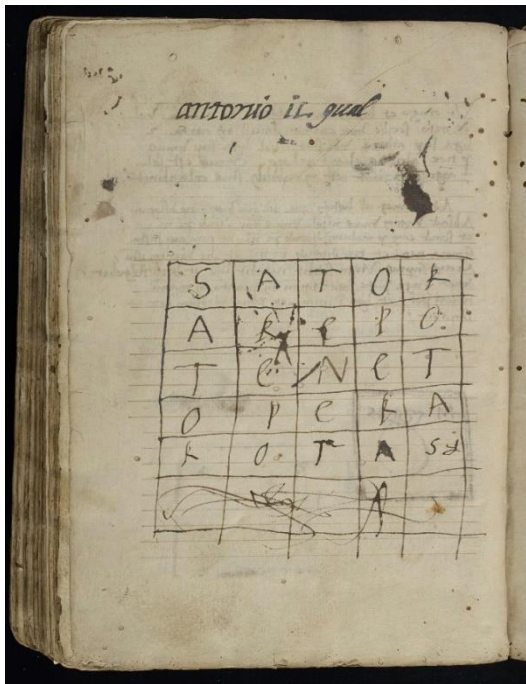 antonio il qual
S A T O R
A R e P O
T e N e T
O P e R A
R O T A S